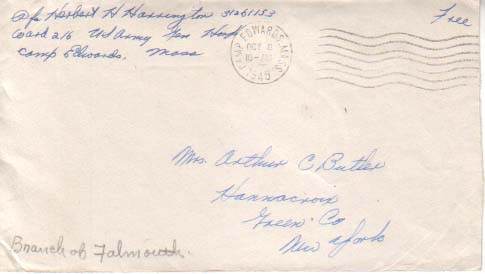 Pfc Herbert H Harrington 31261153
Ward 216 US Army Gen Hosp
Camp Edwards, Mass
Free
CAMP EDWARDS, MASS.
OCT 8
1945
Mrs. Arthur C Butler
Hannacroix
Green Co
New York
Branch of Falmouth.